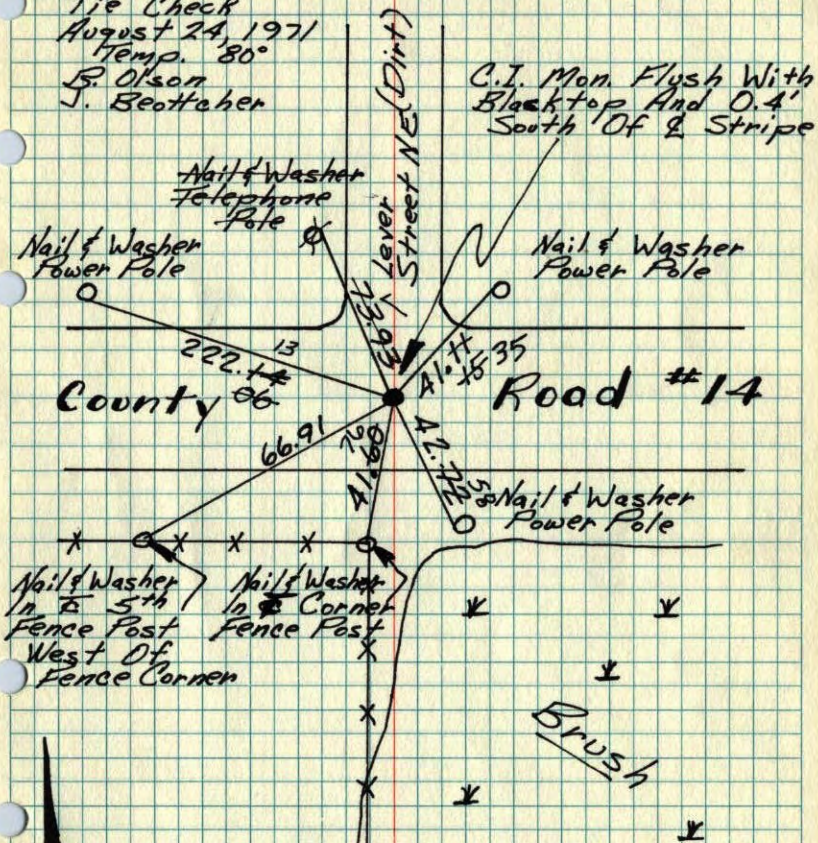 Tie Check
August 24, 1971
Temp. 80°
B. Olson
J. Beottcher
C.I. Mon. Flush With
Blacktop And 0.4'
South Of ℄ Stripe
Lever
Street NE (Dirt)
Nail & Washer
Telephone
Pole
Nail & Washer
Power Pole
Nail & Washer
Power Pole
73.93
13
222.14
06
41.11
15 35
County Road #14
66.91
41.60
42.72
58
Nail & Washer
Power Pole
Nail & Washer
In 5th
Fence Post
West Of
Fence Corner
Nail & Washer
In Corner
Fence Post
Brush